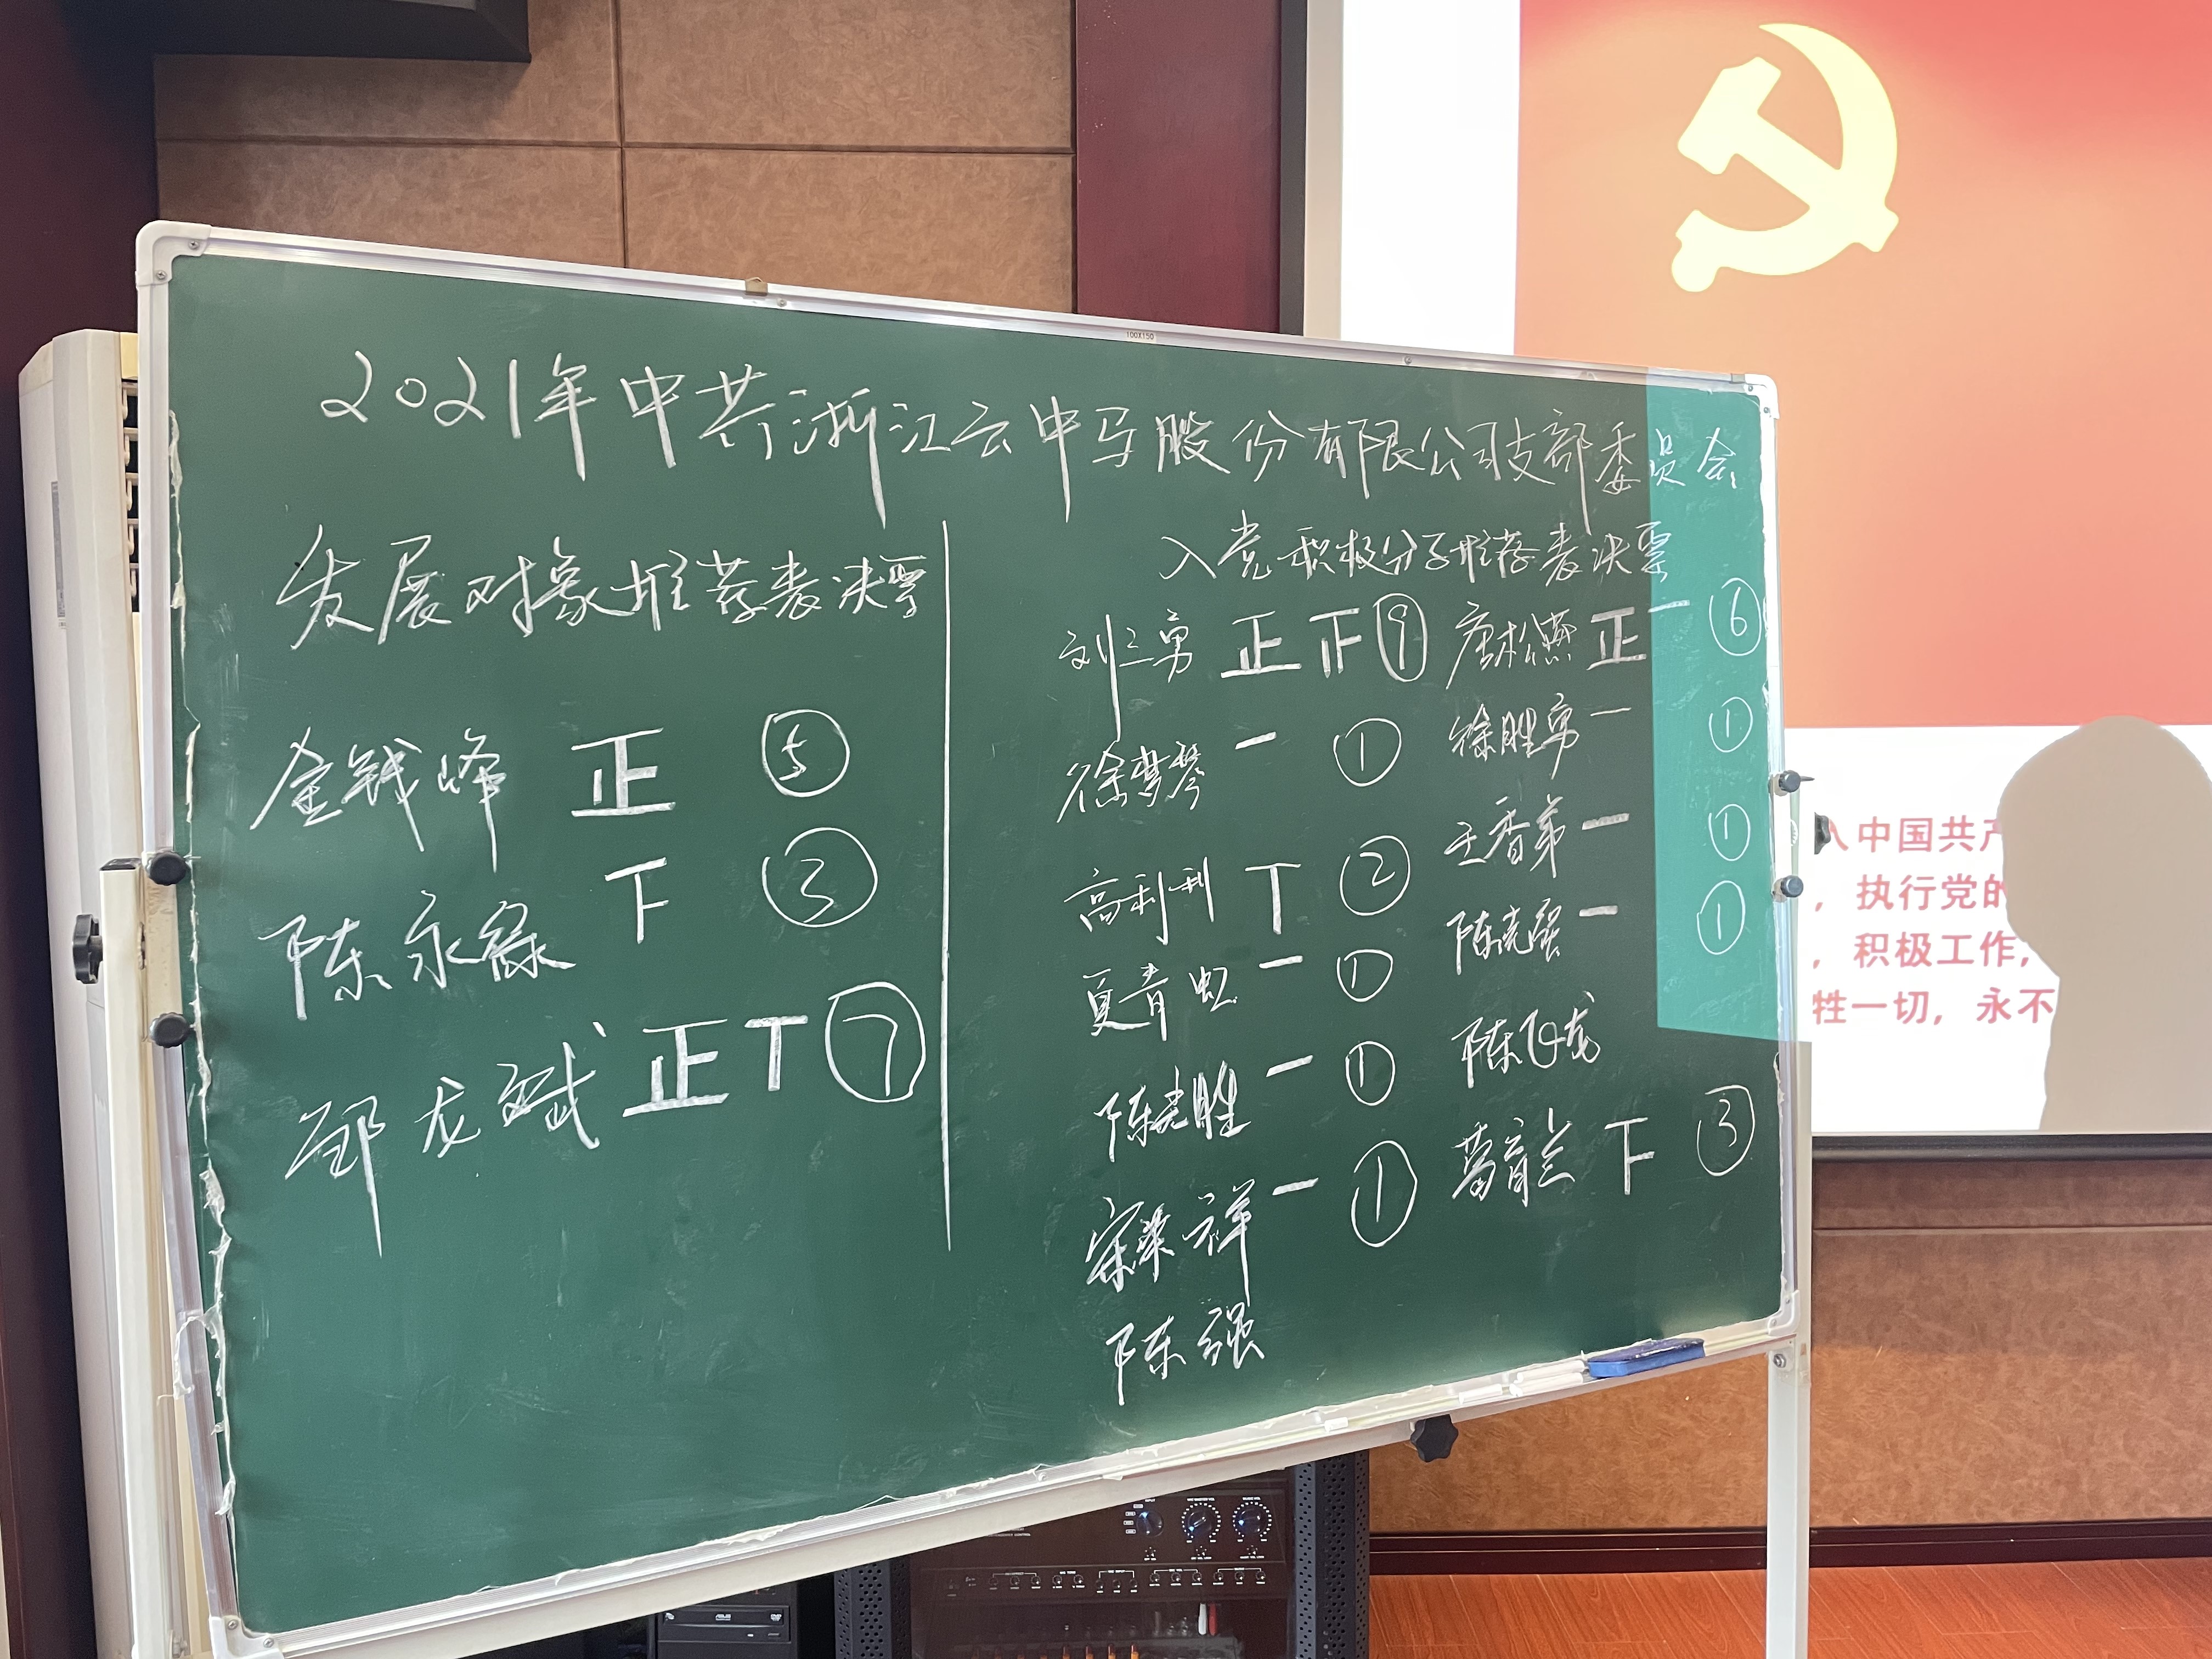 100X150
2021年中共浙江云中马股份有限公司支部委员会
发展对象推荐表决票
金钱峰 正 ⑤
陈永绿 下 ③
邹龙斌 正丅 ⑦
入党积极分子推荐表决票
刘三勇 正正 ⑨
徐梦琴 一 ①
高利利 丅 ②
夏青虹 一 ①
陈老胜 一 ①
宋荣祥 一 ①
陈强
唐松燕 正一 ⑥
徐胜勇 一 ①
王香弟 一 ①
陈克强 一 ①
陈飞龙
葛育兰 下 ③
入中国共产
，执行党的
，积极工作，
牲一切，永不